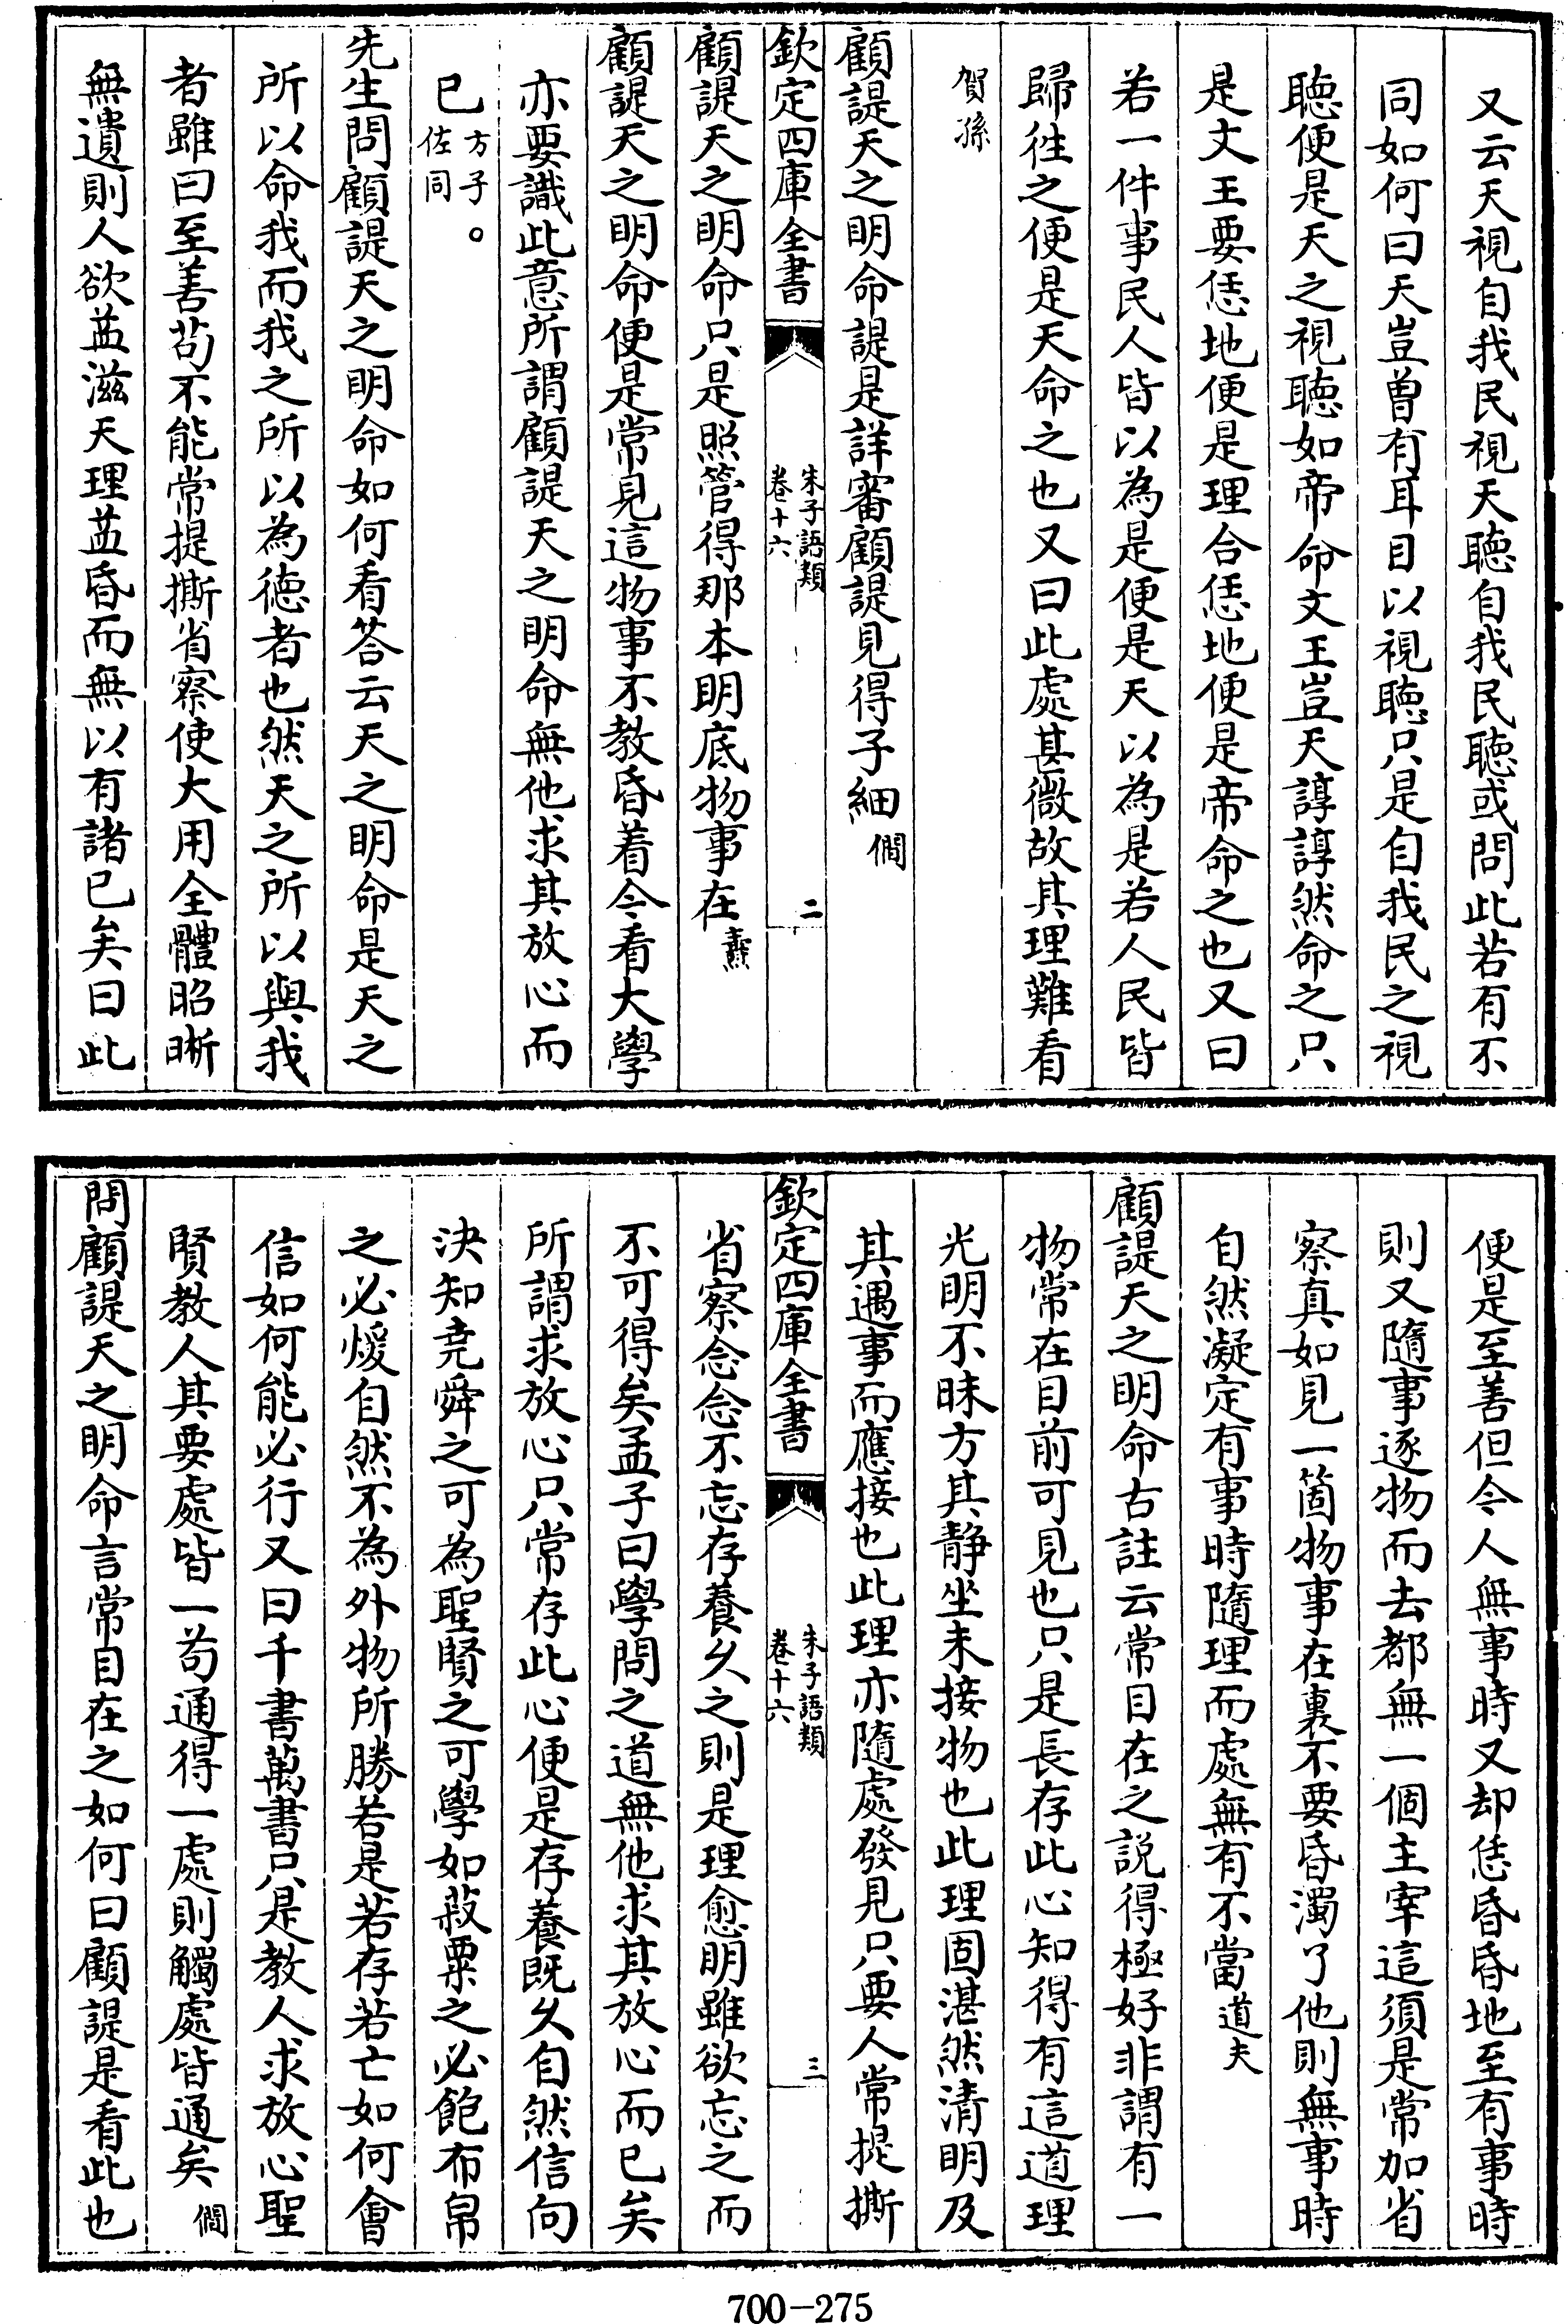 又云天視自我民視天聽自我民聽或問此若有不
同如何曰天豈曽有耳目以視聽只是自我民之視
聽便是天之視聽如帝命文王豈天諄諄然命之只
是文王要恁地便是理合恁地便是帝命之也又曰
若一件事民人皆以為是便是天以為是若人民皆
歸徃之便是天命之也又曰此處甚微故其理難看
賀孫
顧諟天之明命諟是詳審顧諟見得子細 僩
欽定四庫全書
朱子語類
卷十六
二
顧諟天之明命只是照管得那本明底物事在 燾
顧諟天之明命便是常見這物事不教昏着今看大學
亦要識此意所謂顧諟天之明命無他求其放心而
已 方子。
佐同
先生問顧諟天之明命如何看答云天之明命是天之
所以命我而我之所以為德者也然天之所以與我
者雖曰至善苟不能常提撕省察使大用全體昭晰
無遺則人欲益滋天理益昏而無以有諸已矣曰此
便是至善但今人無事時又却恁昏昏地至有事時
則又隨事逐物而去都無一個主宰這須是常加省
察真如見一箇物事在裏不要昏濁了他則無事時
自然凝定有事時隨理而處無有不當 道夫
顧諟天之明命古註云常目在之說得極好非謂有一
物常在目前可見也只是長存此心知得有這道理
光明不昧方其静坐未接物也此理固湛然清明及
其遇事而應接也此理亦隨處發見只要人常提撕
欽定四庫全書
朱子語類
卷十六
三
省察念念不忘存養久之則是理愈明雖欲忘之而
不可得矣孟子曰學問之道無他求其放心而已矣
所謂求放心只常存此心便是存養既久自然信向
決知堯舜之可為聖賢之可學如菽粟之必飽布帛
之必煖自然不為外物所勝若是若存若亡如何會
信如何能必行又曰千書萬書只是教人求放心聖
賢教人其要處皆一苟通得一處則觸處皆通矣 僩
問顧諟天之明命言常目在之如何曰顧諟是看此也
700-275